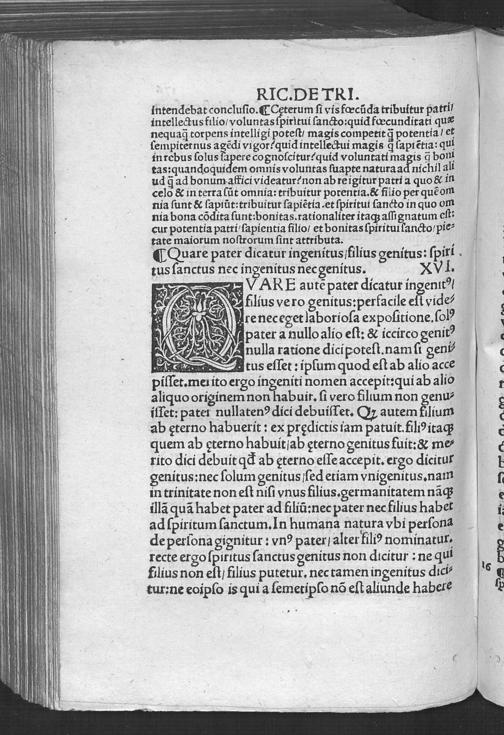 RIC. DE TRI.
intendebat conclusio. ¶Cęterum si vis fœcūda tribuitur patri/
intellectus filio/ voluntas spiritui sancto: quid fœcunditati quæ
nequaq̄ torpens intelligi potest/ magis competit q̄ potentia/ et
sempiternus agēdi vigor/ quid intellectui magis q̄ sapiētia: qui
in rebus solus sapere cognoscitur/ quid voluntati magis q̄ boni
tas: quandoquidem omnis voluntas suapte natura ad nichil ali
ud q̄ ad bonum affici videatur/ non ab re igitur patri a quo & in
celo & in terra sūt omnia: tribuitur potentia. & filio per quē om
nia sunt & sapiūt: tribuitur sapiētia. et spiritui sancto in quo om
nia bona cōdita sunt: bonitas. rationaliter itaqȝ assignatum est:
cur potentia patri/ sapientia filio/ et bonitas spiritui sancto/ pie-
tate maiorum nostrorum sint attributa.
¶Quare pater dicatur ingenitus/ filius genitus: spiri
tus sanctus nec ingenitus nec genitus. XVI.
QVARE autē pater dicatur ingenitꝰ/
filius vero genitus: perfacile est vide-
re nec eget laboriosa expositione. solꝰ
pater a nullo alio est: & iccirco genitꝰ
nulla ratione dici potest. nam si geni-
tus esset: ipsum quod est ab alio acce
pisset. merito ergo ingeniti nomen accepit: qui ab alio
aliquo originem non habuit. si vero filium non genu-
isset: pater nullatenꝰ dici debuisset. Qȝ autem filium
ab ęterno habuerit: ex prędictis iam patuit. filiꝰ itaqȝ
quem ab ęterno habuit/ ab ęterno genitus fuit: & me-
rito dici debuit qđ ab ęterno esse accepit. ergo dicitur
genitus: nec solum genitus/ sed etiam vnigenitus. nam
in trinitate non est nisi vnus filius. germanitatem nāqȝ
illā quā habet pater ad filiū: nec pater nec filius habet
ad spiritum sanctum. In humana natura vbi persona
de persona gignitur: vnꝰ pater/ alter filiꝰ nominatur.
recte ergo spiritus sanctus genitus non dicitur: ne qui
filius non est/ filius putetur. nec tamen ingenitus dici-
tur: ne eoipso is qui a semetipso nō est aliunde habere
16